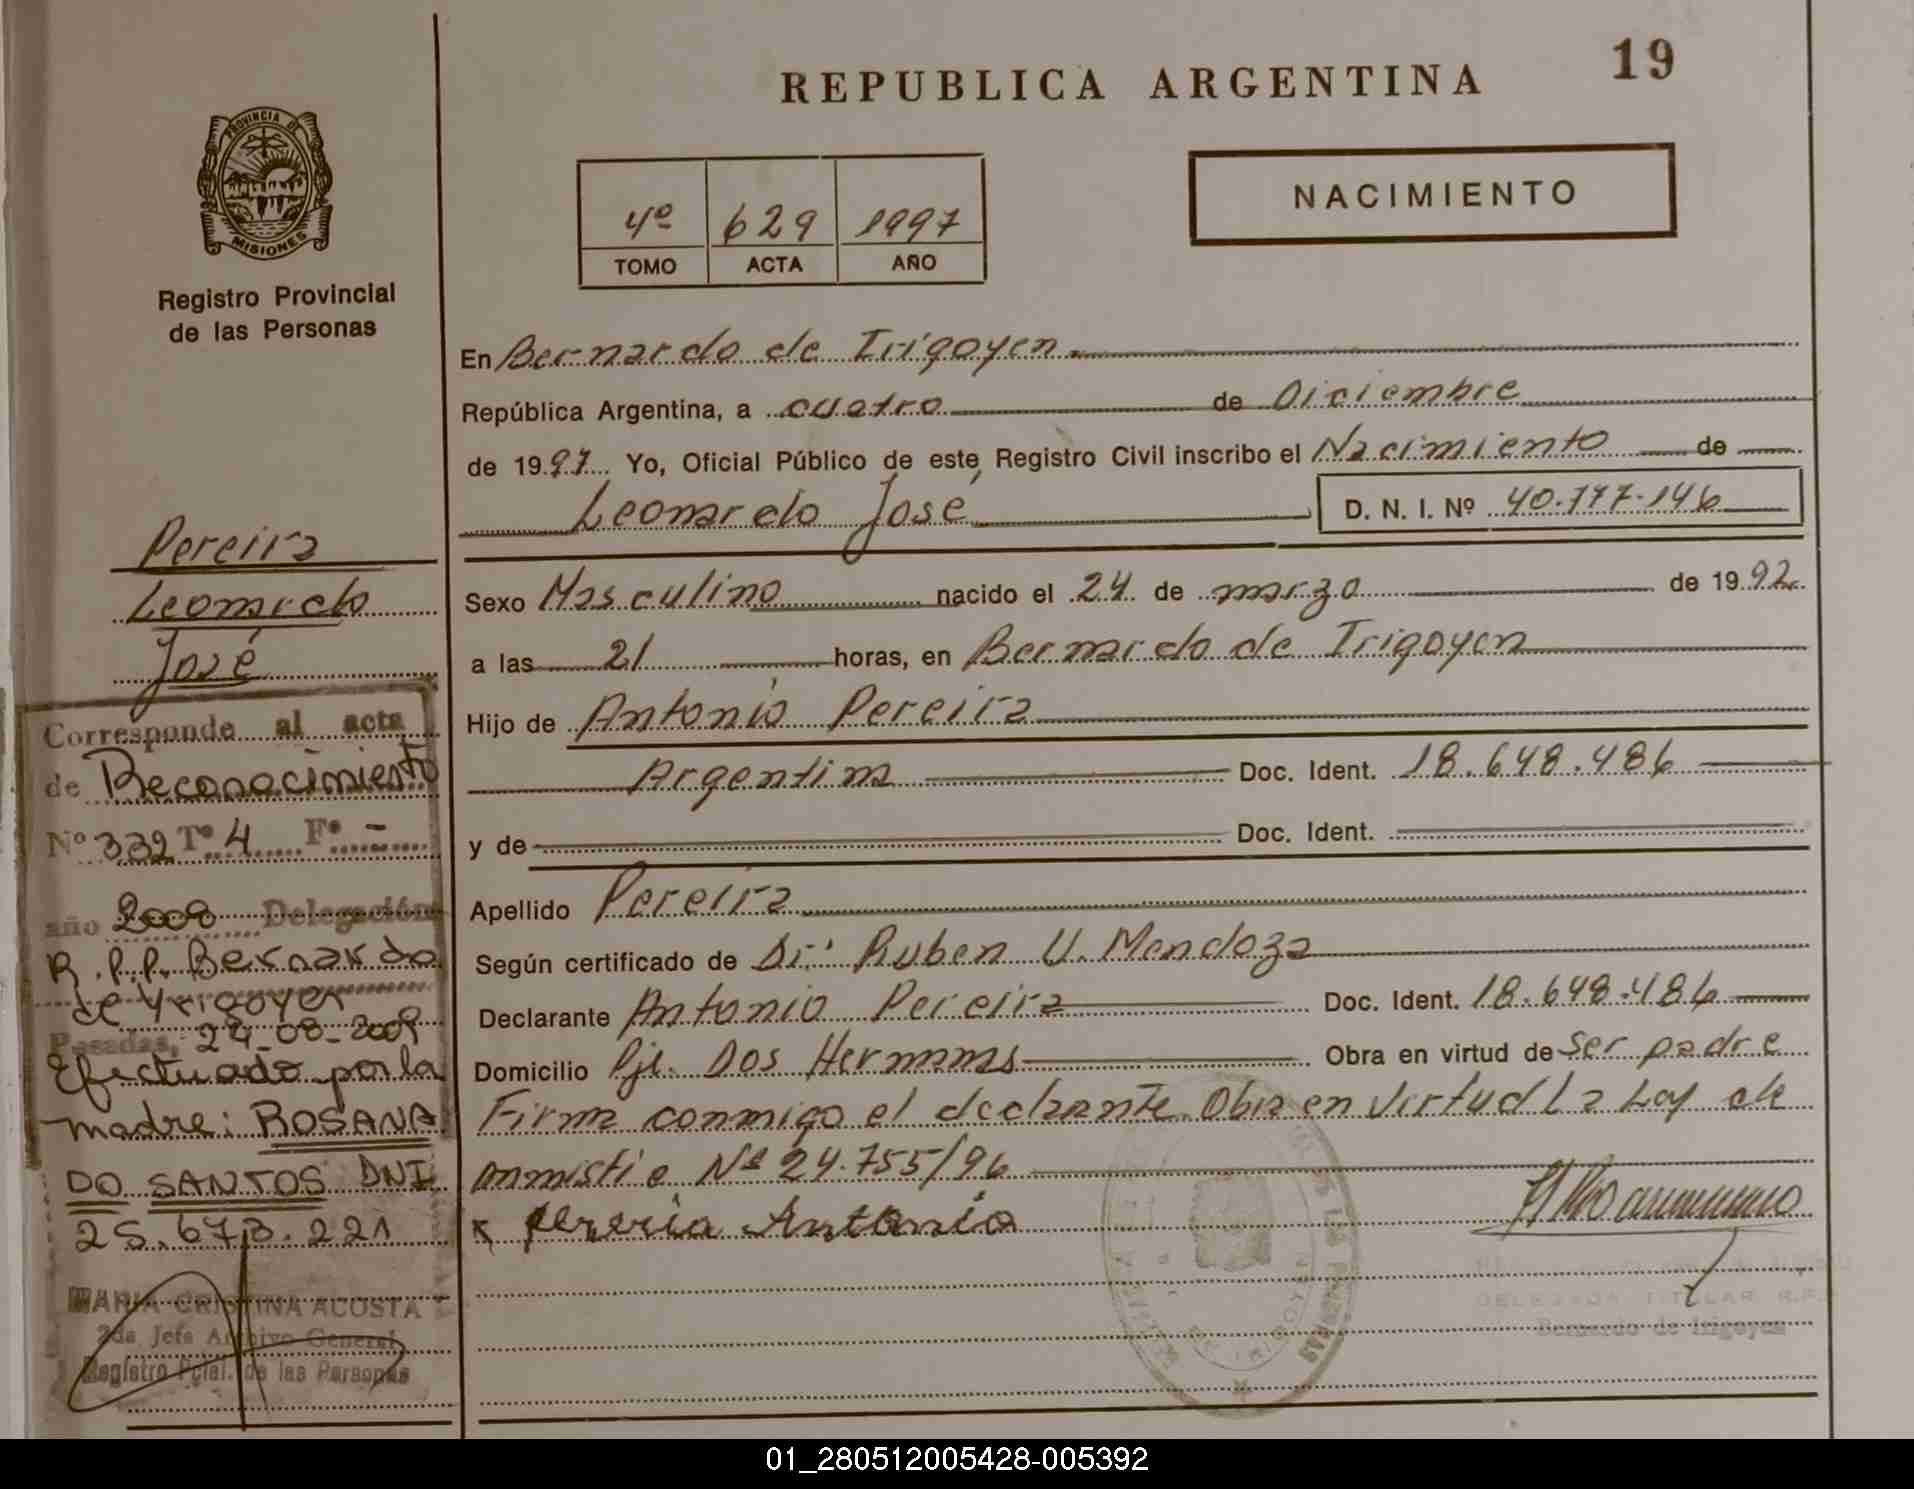 REPUBLICA ARGENTINA
19
PROVINCIA DE
MISIONES
Registro Provincial
de las Personas
4º 629 1997
TOMO ACTA AÑO
NACIMIENTO
En Bernardo de Irigoyen
República Argentina, a cuatro de Diciembre
de 1997 Yo, Oficial Público de este Registro Civil inscribo el Nacimiento de
Leonardo José D. N. I. Nº 40.777.146
Sexo Masculino nacido el 24 de marzo de 1992
a las 21 horas, en Bernardo de Irigoyen
Hijo de Antonio Pereira
Argentina Doc. Ident. 18.648.486
y de Doc. Ident.
Apellido Pereira
Según certificado de Dr. Ruben U. Mendoza
Declarante Antonio Pereira Doc. Ident. 18.648.486
Domicilio Pje. Dos Hermanas Obra en virtud de ser padre
Firma conmigo el declarante. Obra en virtud La Ley de
Nº 24.755/96
Antonio
Pereira
Leonardo
José
Corresponde al acta
de Reconocimiento
Nº 332 Tº 4 Fº -
año 2008 Delegación
R.P.P. Bernardo
de Yrigoyen
Posadas, 24-08-2009
Efectuado por la
madre: ROSANA
DO SANTOS DNI
25.673.221
MARIA CRISTINA ACOSTA
2da Jefe Archivo General
Registro Pcial. de las Personas
DELEGADA TITULAR R.P.P.
Bernardo de Irigoyen
01_280512005428-005392